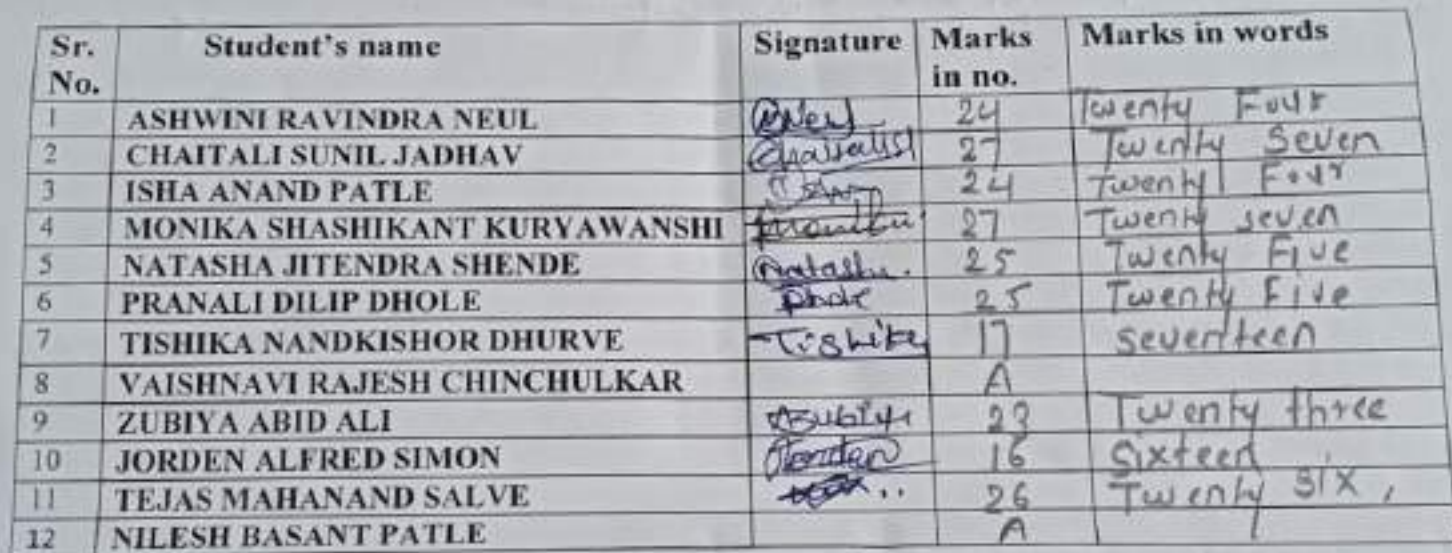 Sr. No. Student's name Signature Marks in no. Marks in words
1 ASHWINI RAVINDRA NEUL 24 Twenty Four
2 CHAITALI SUNIL JADHAV 27 Twenty Seven
3 ISHA ANAND PATLE 24 Twenty Four
4 MONIKA SHASHIKANT KURYAWANSHI 27 Twenty seven
5 NATASHA JITENDRA SHENDE Natasha. 25 Twenty Five
6 PRANALI DILIP DHOLE 25 Twenty Five
7 TISHIKA NANDKISHOR DHURVE Tishika 17 seventeen
8 VAISHNAVI RAJESH CHINCHULKAR A
9 ZUBIYA ABID ALI 23 Twenty three
10 JORDEN ALFRED SIMON 16 Sixteen
11 TEJAS MAHANAND SALVE 26 Twenty Six,
12 NILESH BASANT PATLE A